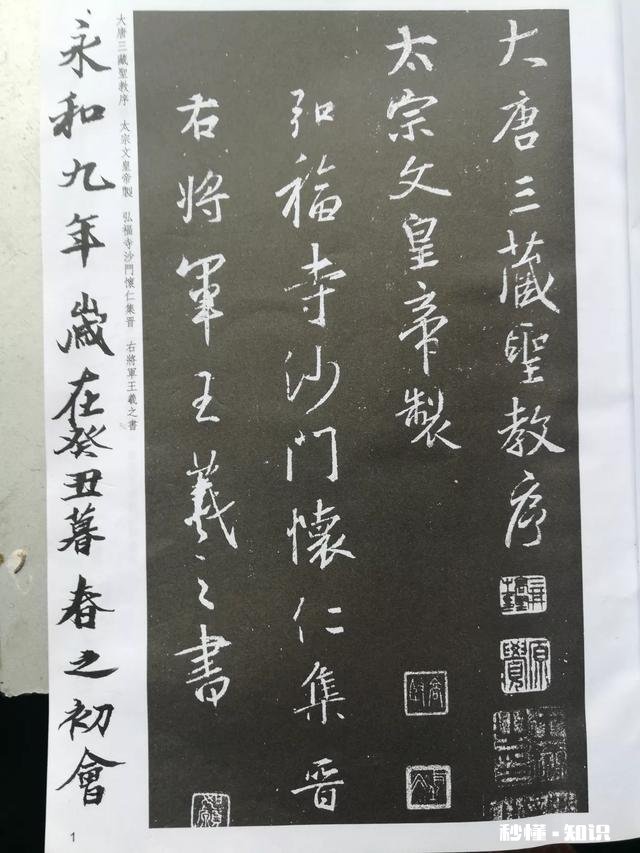 大唐三藏聖教序
太宗文皇帝製
弘福寺沙門懷仁集晋
右將軍王羲之書
大唐三藏聖教序 太宗文皇帝製 弘福寺沙門懷仁集晉 右將軍王羲之書
永和九年歲在癸丑暮春之初會
1
秒懂·知识